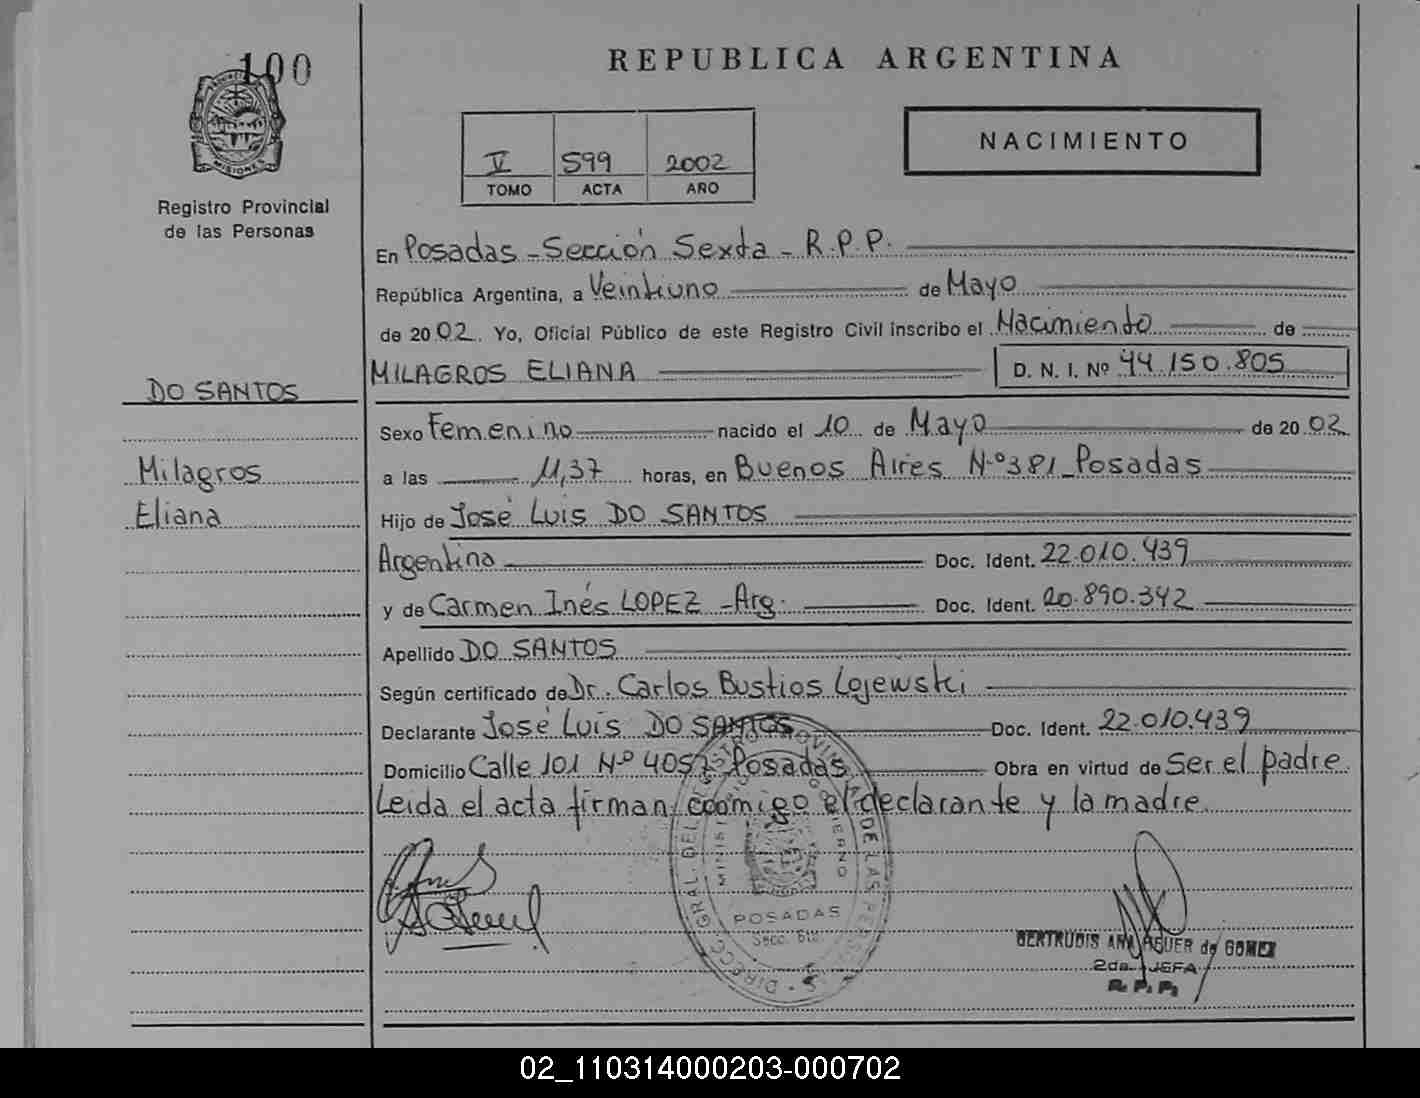 100
MISIONES
Registro Provincial
de las Personas
DO SANTOS
Milagros
Eliana
REPUBLICA ARGENTINA
V 599 2002
TOMO ACTA AÑO
NACIMIENTO
En Posadas - Sección Sexta - R.P.P.
República Argentina, a Veintiuno de Mayo
de 2002. Yo, Oficial Público de este Registro Civil inscribo el Nacimiento de
MILAGROS ELIANA D. N. I. Nº 44.150.805
Sexo Femenino nacido el 10 de Mayo de 2002
a las 11,37 horas, en Buenos Aires N.º 381 - Posadas
Hijo de José Luis DO SANTOS
Argentina Doc. Ident. 22.010.439
y de Carmen Inés LOPEZ - Arg. Doc. Ident. 20.890.342
Apellido DO SANTOS
Según certificado de Dr. Carlos Bustios Lojewski
Declarante José Luis DO SANTOS Doc. Ident. 22.010.439
Domicilio Calle 101 Nº 4057 Posadas Obra en virtud de Ser el padre.
Leida el acta firman coomigo el declarante y la madre.
DIRECC. GRAL. DEL REGISTRO PROVINCIAL DE LAS PERSONAS
MINISTERIO GOBIERNO
POSADAS
Secc. 6ta
GERTRUDIS ANA AGUER de GOMEZ
2da. JEFA
R. P. P.
02_110314000203-000702